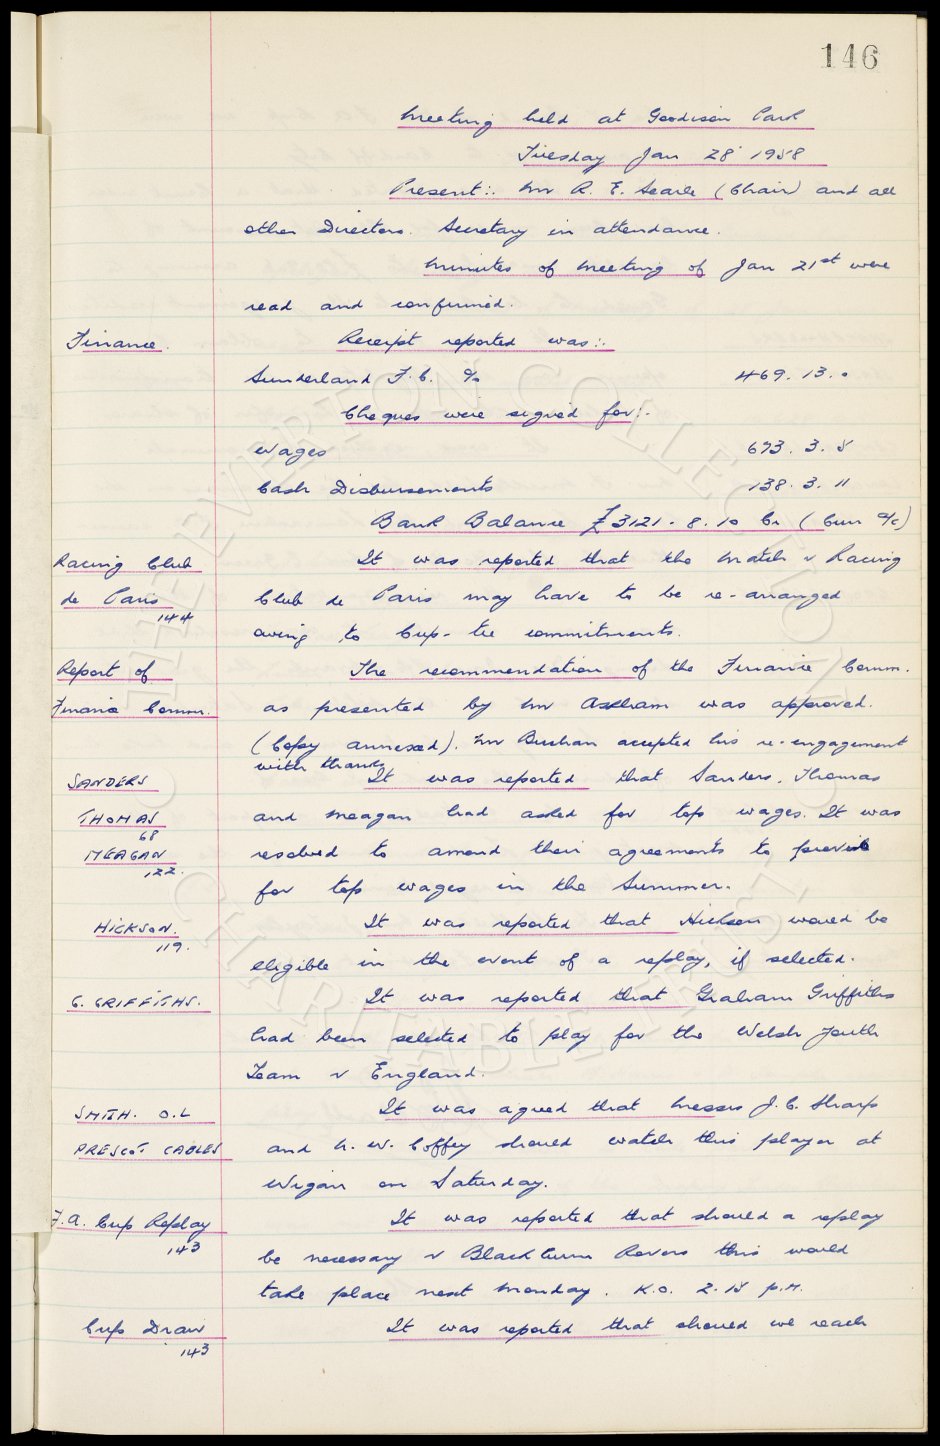 146
Meeting held at Goodison Park
Tuesday Jan 28 1958
Present:. Mr R. E. Searle (Chair) and all
other Directors. Secretary in attendance.
Minutes of Meeting of Jan 21st were
read and confirmed.
Finance. Receipt reported was:.
Sunderland F.C. % 469. 13. 0
Cheques were signed for:-
Wages 673. 3. 5
Cash Disbursements 138. 3. 11
Bank Balance £3121. 8. 10 Cr (Curr a/c)
Racing Club It was reported that the match v Racing
de Paris Club de Paris may have to be re-arranged
144 owing to Cup-tie commitments.
Report of The recommendation of the Finance Comm.
Finance Comm. as presented by Mr Askham was approved.
(Copy annexed). Mr Buchan accepted his re-engagement
with thanks
SANDERS It was reported that Sanders, Thomas
THOMAS and Meagan had asked for top wages. It was
68
MEAGAN resolved to amend their agreements to provide
122. for top wages in the Summer.
HICKSON. It was reported that Hickson would be
119. eligible in the event of a replay, if selected.
G. GRIFFITHS. It was reported that Graham Griffiths
had been selected to play for the Welsh Youth
Team v England.
SMITH. O.L It was agreed that Messrs J. C. Sharp
PRESCOT CABLES and h. W. Coffey should watch this player at
Wigan on Saturday.
F.A. Cup Replay It was reported that should a replay
143 be necessary v Blackburn Rovers this would
take place next Monday. K.O. 2.15 p.m.
Cup Draw It was reported that should we reach
143
© THE EVERTON COLLECTION
CHARITABLE TRUST